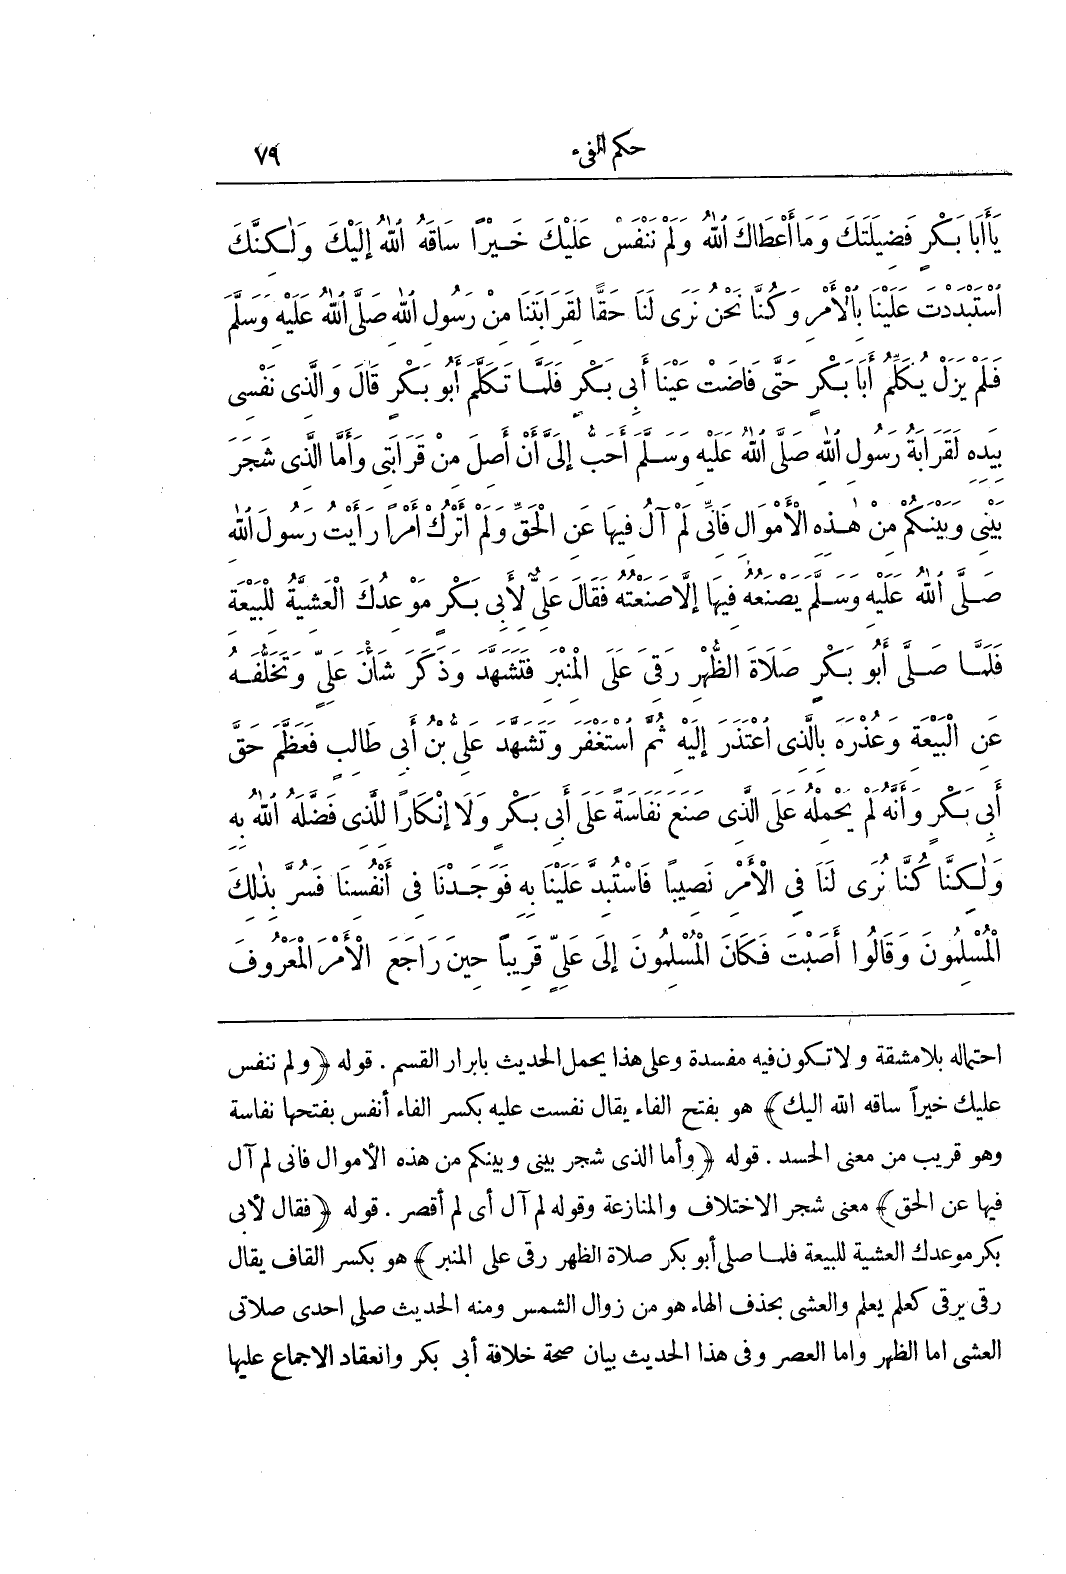 حكم الفىء ٧٩
يَاأَبَا بَكْرٍ فَضِيلَتَكَ وَمَا أَعْطَاكَ ٱللّٰهُ وَلَمْ نَنْفَسْ عَلَيْكَ خَيْرًا سَاقَهُ ٱللّٰهُ إِلَيْكَ وَلٰكِنَّكَ
ٱسْتَبْدَدْتَ عَلَيْنَا بِالْأَمْرِ وَكُنَّا نَحْنُ نَرَى لَنَا حَقًّا لِقَرَابَتِنَا مِنْ رَسُولِ ٱللّٰهِ صَلَّى ٱللّٰهُ عَلَيْهِ وَسَلَّمَ
فَلَمْ يَزَلْ يُكَلِّمُ أَبَا بَكْرٍ حَتَّى فَاضَتْ عَيْنَا أَبِى بَكْرٍ فَلَمَّا تَكَلَّمَ أَبُو بَكْرٍ قَالَ وَالَّذِى نَفْسِى
بِيَدِهِ لَقَرَابَةُ رَسُولِ ٱللّٰهِ صَلَّى ٱللّٰهُ عَلَيْهِ وَسَلَّمَ أَحَبُّ إِلَىَّ أَنْ أَصِلَ مِنْ قَرَابَتِى وَأَمَّا الَّذِى شَجَرَ
بَيْنِى وَبَيْنَكُمْ مِنْ هٰذِهِ الْأَمْوَالِ فَإِنِّى لَمْ آلُ فِيهَا عَنِ الْحَقِّ وَلَمْ أَتْرُكْ أَمْرًا رَأَيْتُ رَسُولَ ٱللّٰهِ
صَلَّى ٱللّٰهُ عَلَيْهِ وَسَلَّمَ يَصْنَعُهُ فِيهَا إِلَّا صَنَعْتُهُ فَقَالَ عَلِىٌّ لِأَبِى بَكْرٍ مَوْعِدُكَ الْعَشِيَّةُ لِلْبَيْعَةِ
فَلَمَّا صَلَّى أَبُو بَكْرٍ صَلَاةَ الظُّهْرِ رَقِىَ عَلَى الْمِنْبَرِ فَتَشَهَّدَ وَذَكَرَ شَأْنَ عَلِىٍّ وَتَخَلُّفَهُ
عَنِ الْبَيْعَةِ وَعُذْرَهُ بِالَّذِى ٱعْتَذَرَ إِلَيْهِ ثُمَّ ٱسْتَغْفَرَ وَتَشَهَّدَ عَلِىُّ بْنُ أَبِى طَالِبٍ فَعَظَّمَ حَقَّ
أَبِى بَكْرٍ وَأَنَّهُ لَمْ يَحْمِلْهُ عَلَى الَّذِى صَنَعَ نَفَاسَةً عَلَى أَبِى بَكْرٍ وَلَا إِنْكَارًا لِلَّذِى فَضَّلَهُ ٱللّٰهُ بِهِ
وَلٰكِنَّا كُنَّا نُرَى لَنَا فِى الْأَمْرِ نَصِيبًا فَٱسْتُبِدَّ عَلَيْنَا بِهِ فَوَجَدْنَا فِى أَنْفُسِنَا فَسُرَّ بِذٰلِكَ
الْمُسْلِمُونَ وَقَالُوا أَصَبْتَ فَكَانَ الْمُسْلِمُونَ إِلَى عَلِىٍّ قَرِيبًا حِينَ رَاجَعَ الْأَمْرَ الْمَعْرُوفَ
احتماله بلا مشقة ولا تكون فيه مفسدة وعلى هذا يحمل الحديث بابرار القسم . قوله ﴿ولم ننفس
عليك خيراً ساقه الله اليك﴾ هو بفتح الفاء يقال نفست عليه بكسر الفاء أنفس بفتحها نفاسة
وهو قريب من معنى الحسد . قوله ﴿وأما الذى شجر بينى وبينكم من هذه الأموال فانى لم آل
فيها عن الحق﴾ معنى شجر الاختلاف والمنازعة وقوله لم آل أى لم أقصر . قوله ﴿فقال لأبى
بكر موعدك العشية للبيعة فلما صلى أبو بكر صلاة الظهر رقى على المنبر﴾ هو بكسر القاف يقال
رقى يرقى كعلم يعلم والعشى بحذف الهاء هو من زوال الشمس ومنه الحديث صلى احدى صلاتى
العشى اما الظهر واما العصر وفى هذا الحديث بيان صحة خلافة أبى بكر وانعقاد الاجماع عليها